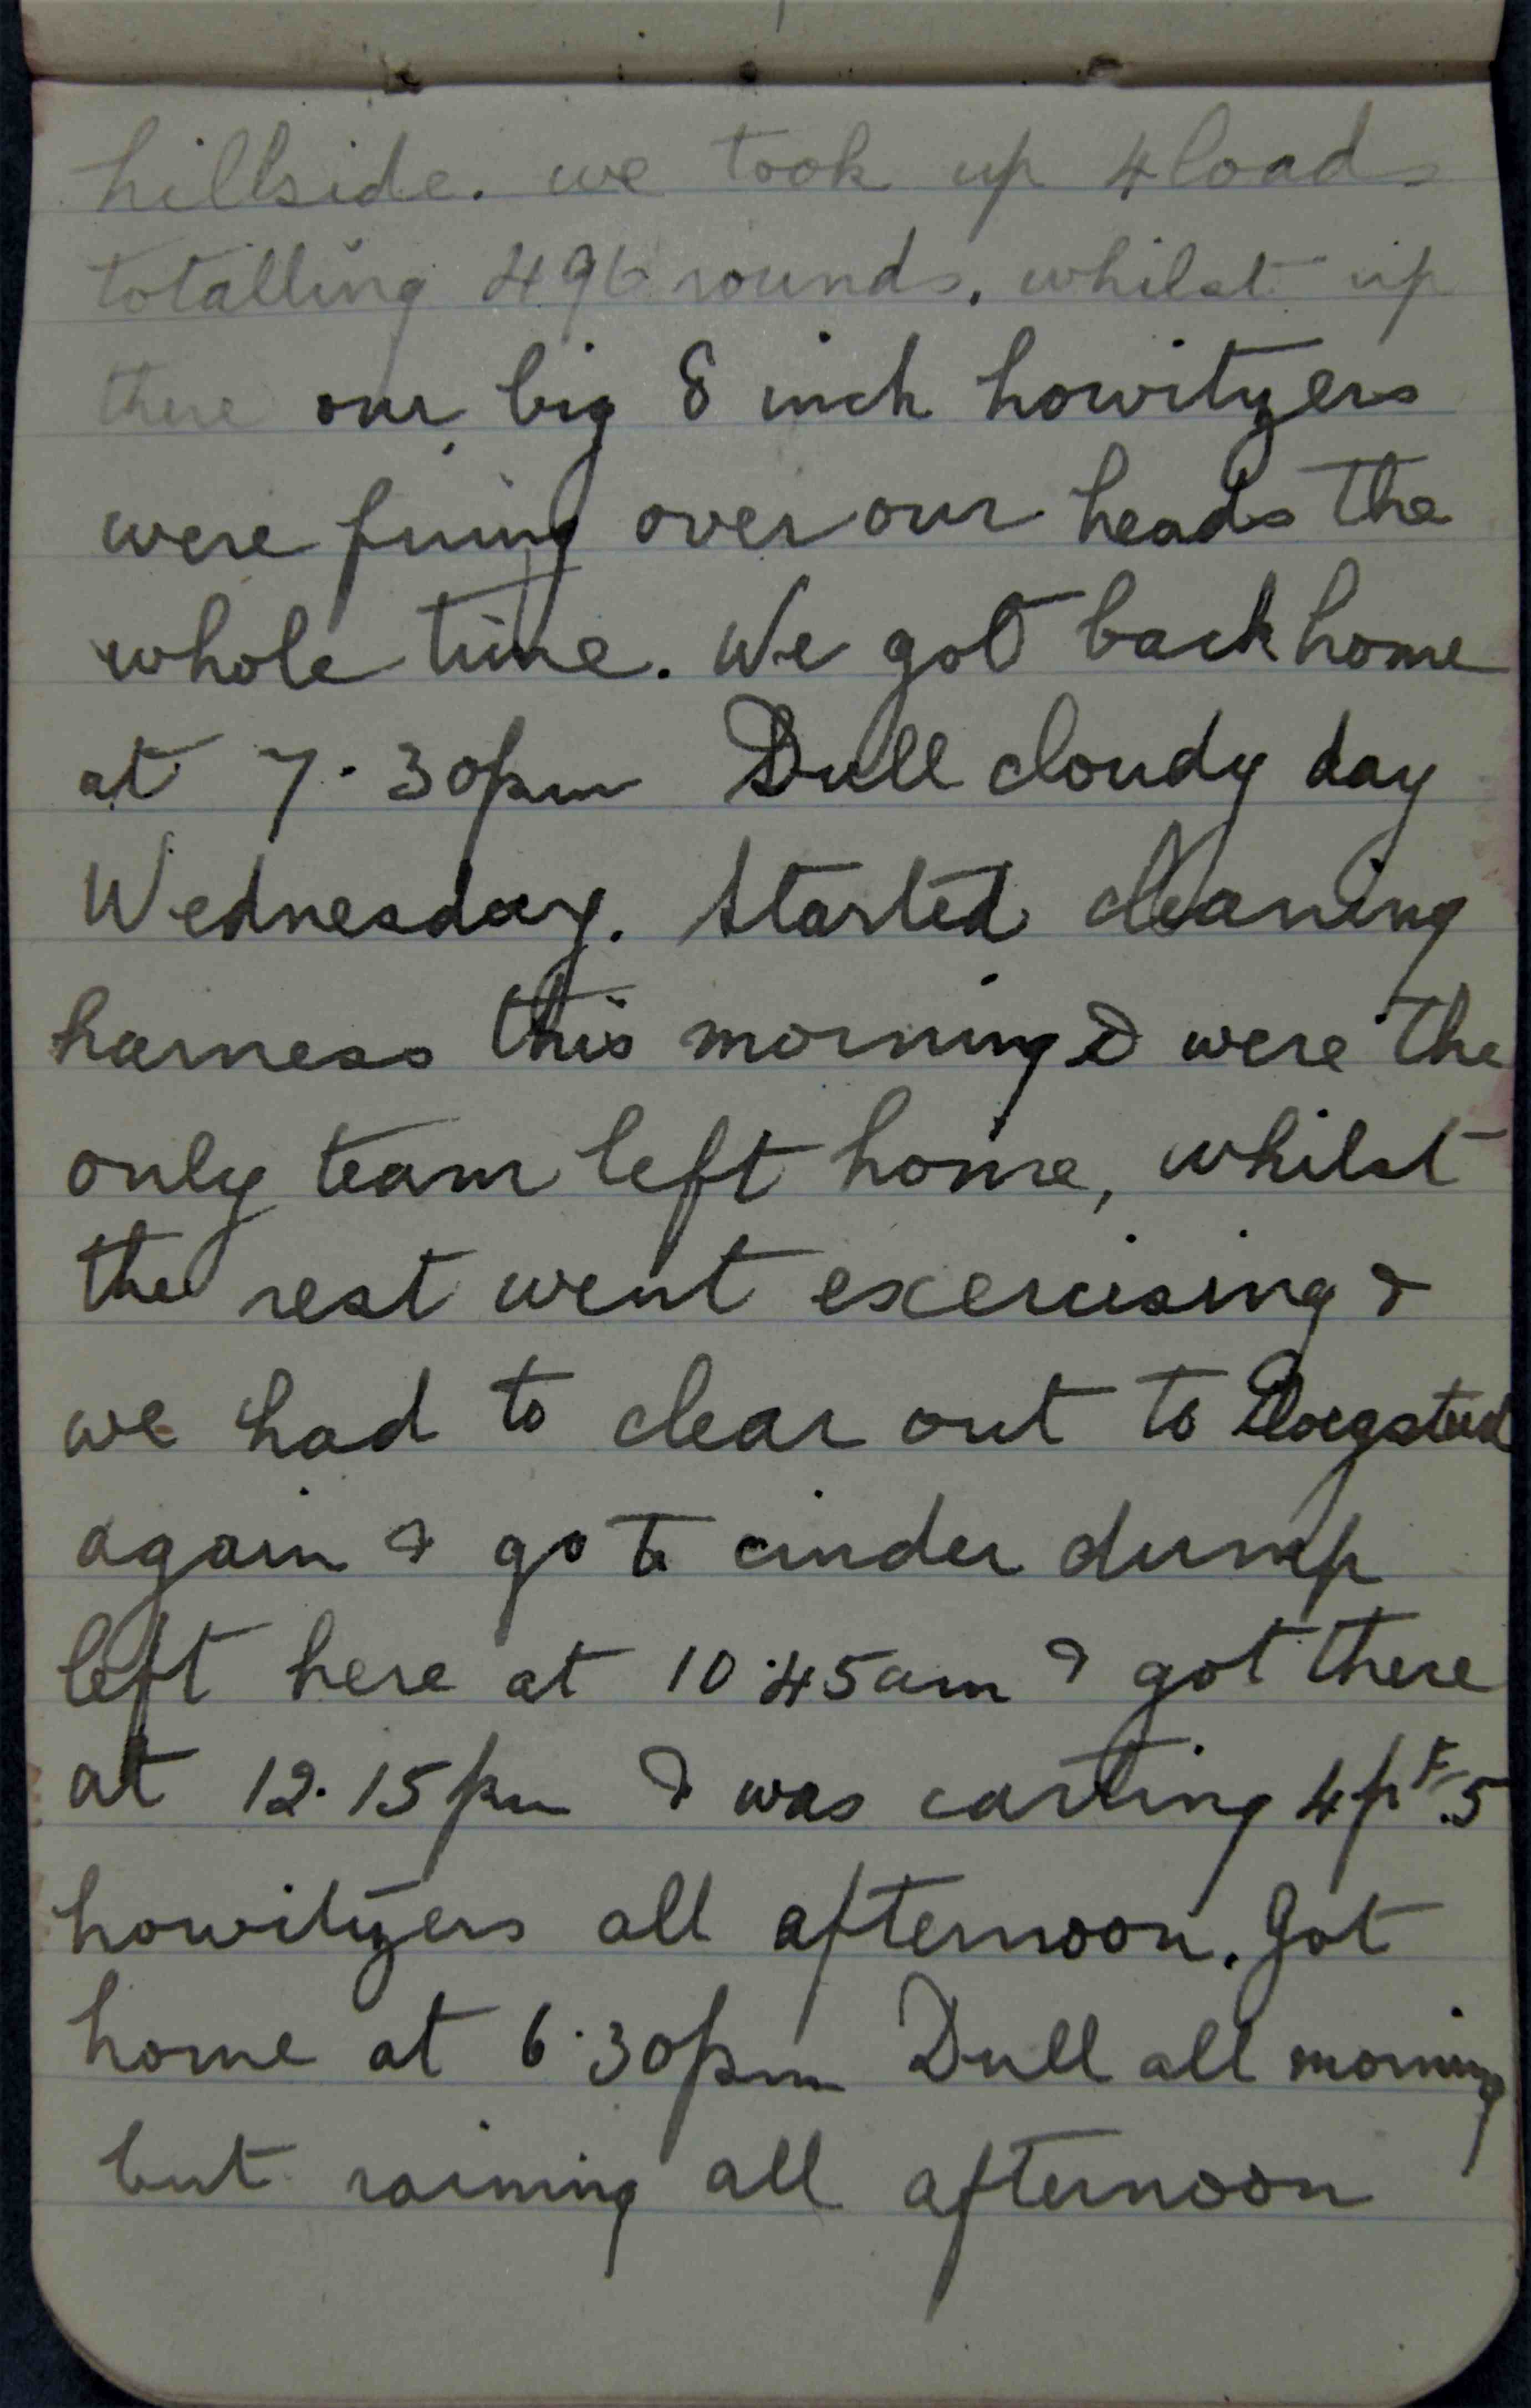 hillside. we took up 4 loads
totalling 496 rounds. whilst up
there our big 8 inch howitzers
were firing over our heads the
whole time. We got back home
at 7.30pm Dull cloudy day
Wednesday. Started cleaning
harness this morning & were the
only team left home, whilst
the rest went exercising &
we had to clear out to Ploegsteed
again & go to cinder dump
left here at 10.45am & got there
at 12.15pm & was carting 4 pt .5
howitzers all afternoon. Got
home at 6.30pm Dull all morning
but raining all afternoon